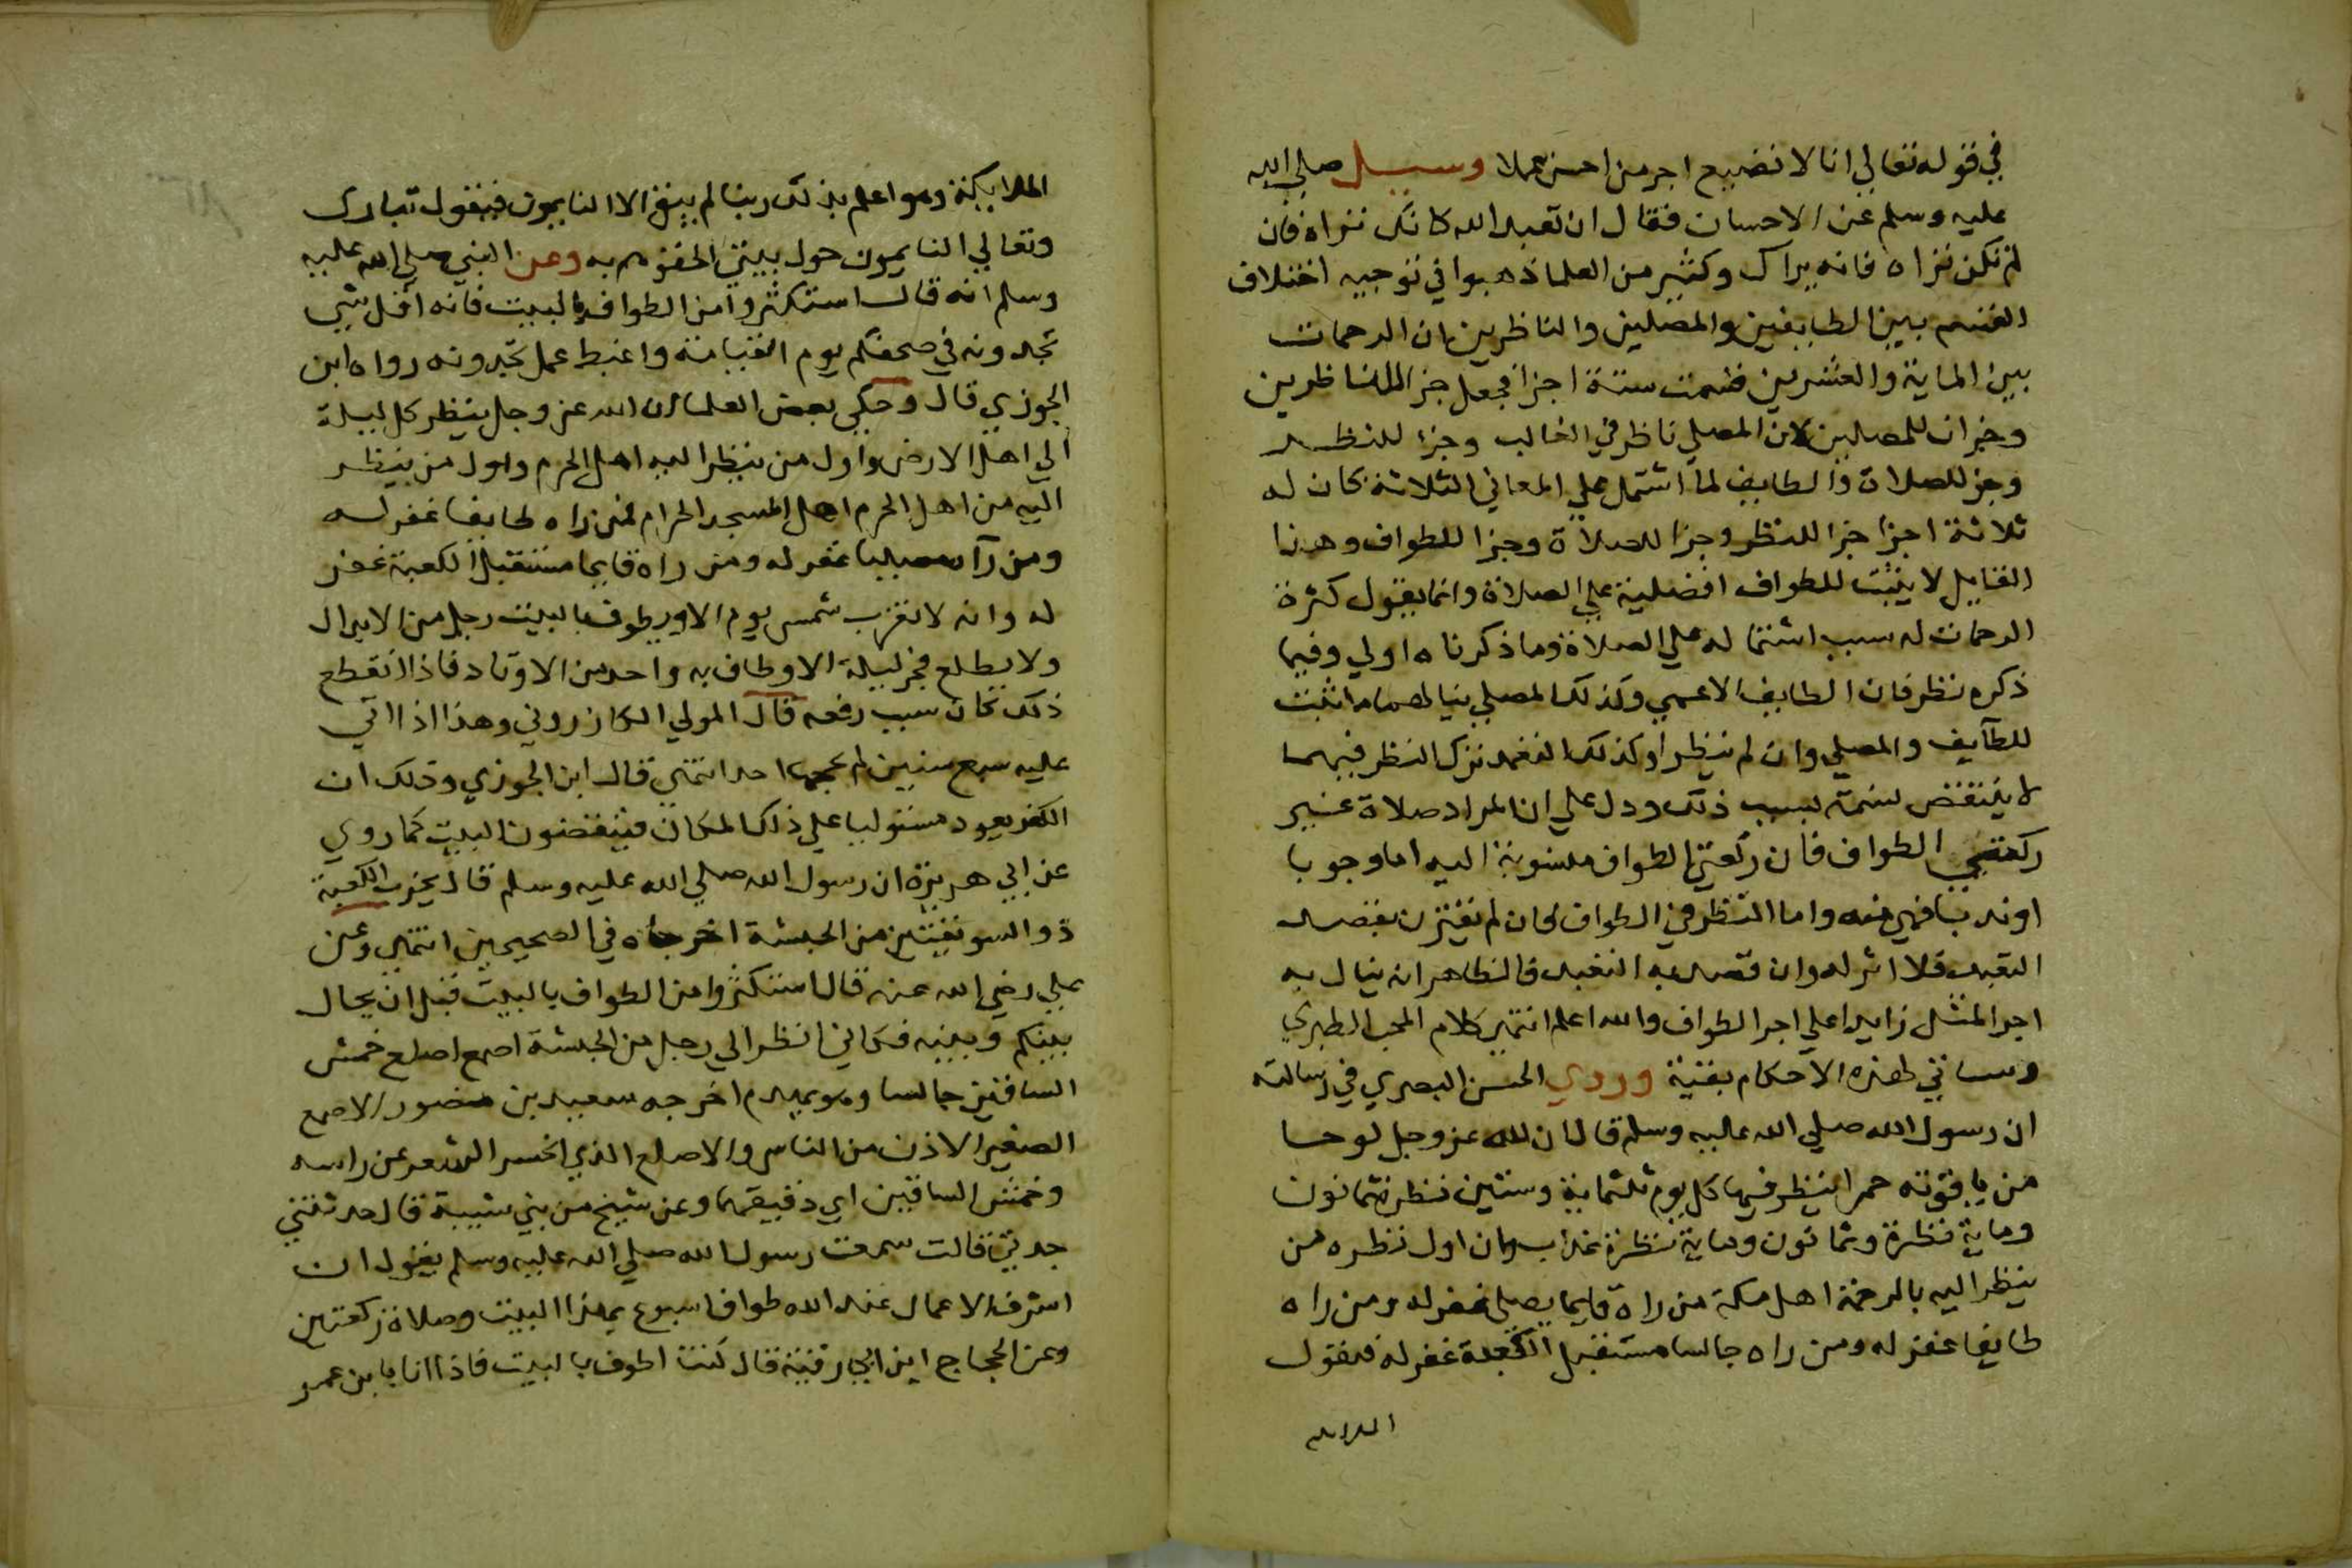 في قوله تعالي انا لا نضيع اجر من احسن عملا وسيل صلي الله
عليه وسلم عن الاحسان فقال ان تعبد الله كانك تراه فان
لم تكن تراه فانه يراك وكثير من العلما ذهبوا في توجيه اختلاف
القسم بين الطايفين والمصلين والناظرين ان الرحمات
بين الماية والعشرين قسمت ستة اجزا فجعل جزا للناظرين
وجزان للمصلين لان المصلي ناظر في الغالب وجزا للنظر
وجز للصلاة والطايف لما اشتمل علي المعاني الثلاثة كان له
ثلاثة اجزا جزا للنظر وجزا للصلاة وجزا للطواف وهذا
القايل لا يثبت للطواف افضلية علي الصلاة وانما يقول كثرة
الرحمات له سبب اشتماله علي الصلاة وما ذكرناه اولي وفيما
ذكره نظر فان الطايف الاعمي وكذلك المصلي ينالهما ما اثبت
للطايف والمصلي وان لم ينظرا وكذلك لو تعمد ترك النظر فيهما
لا ينتقض قسمه بسبب ذلك ودل علي ان المراد صلاة غير
ركعتي الطواف فان ركعتي الطواف منسوبة اليه اما وجوبا
او ندبا فهي منه واما النظر في الطواف فان لم يقترن بقصد
التعبد فلا اثر له وان قصد به التعبد فالظاهر ان ينال به
اجر المثل زايدا علي اجر الطواف والله اعلم انتهي كلام المحب الطبري
وسياتي لهذه الاحكام بقية وروي الحسن البصري في رسالته
ان رسول الله صلي الله عليه وسلم قال ان لله عز وجل لوحا
من ياقوته حمرا ينظر فيها كل يوم ثلثماية وستين نظرة ثمانون
وماية نظرة وثمانون وماية نظرة عذاب وان اول نظره من
ينظر اليه بالرحمة اهل مكة من راه قايما يصلي غفر له ومن راه
طايفا غفر له ومن راه جالسا مستقبل الكعبة غفر له فيقول
الملايكة
الملايكة وهو اعلم بذلك ربنا لم يبق الا النايمون فيقول تبارك
وتعالي النايمون حول بيتي الحقوهم به وعن النبي صلي الله عليه
وسلم انه قال استكثروا من الطواف بالبيت فانه اقل شي
تجدونه في صحفكم يوم القيامة واغبط عمل تجدونه رواه ابن
الجوزي قال وحكي بعض العلما ان الله عز وجل ينظر كل ليلة
الي اهل الارض واول من ينظر اليه اهل الحرم واول من ينظر
اليه من اهل الحرم اهل المسجد الحرام فمن راه طايفا غفر له
ومن راه مصليا غفر له ومن راه قايما مستقبل الكعبة غفر
له وانه لا تغرب شمس يوم الا ويطوف بالبيت رجل من الابدال
ولا يطلع فجر ليلة الا وطاف به واحد من الاوتاد فاذا انقطع
ذلك كان سبب رفعه قال المولي الكازروني وهذا اذا اتي
عليه سبع سنين لم يحجه احد انتهي قال ابن الجوزي وذلك ان
الكفر يعود مستوليا علي ذلك المكان فينقضون البيت كما روي
عن ابي هريرة ان رسول الله صلي الله عليه وسلم قال يخرب الكعبة
ذو السويقتين من الحبشة اخرجاه في الصحيحين انتهي وعن
علي رضي الله عنه قال استكثروا من الطواف بالبيت قبل ان يحال
بينكم وبينه فكاني انظر الي رجل من الحبشة اصمع اصلع خمش
الساقين جالسا وهو يهدم اخرجه سعيد بن منصور الاصمع
الصغير الاذن من الناس والاصلع الذي انحسر الشعر عن راسه
وخمش الساقين اي دقيقهما وعن شيخ من بني شيبة قال حدثتني
جدتي قالت سمعت رسول الله صلي الله عليه وسلم يقول ان
اشرف الاعمال عند الله طواف اسبوع بهذا البيت وصلاة ركعتين
وعن الحجاج ابن ابي رقية قال كنت اطوف بالبيت فاذا انا بابن عمر